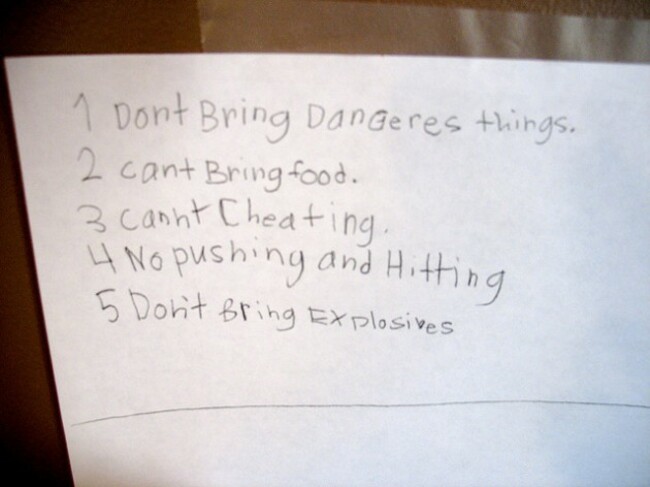 1 Dont Bring Dangeres things.
2 cant Bring food.
3 cannt Cheating.
4 No pushing and Hitting
5 Don't Bring Explosives